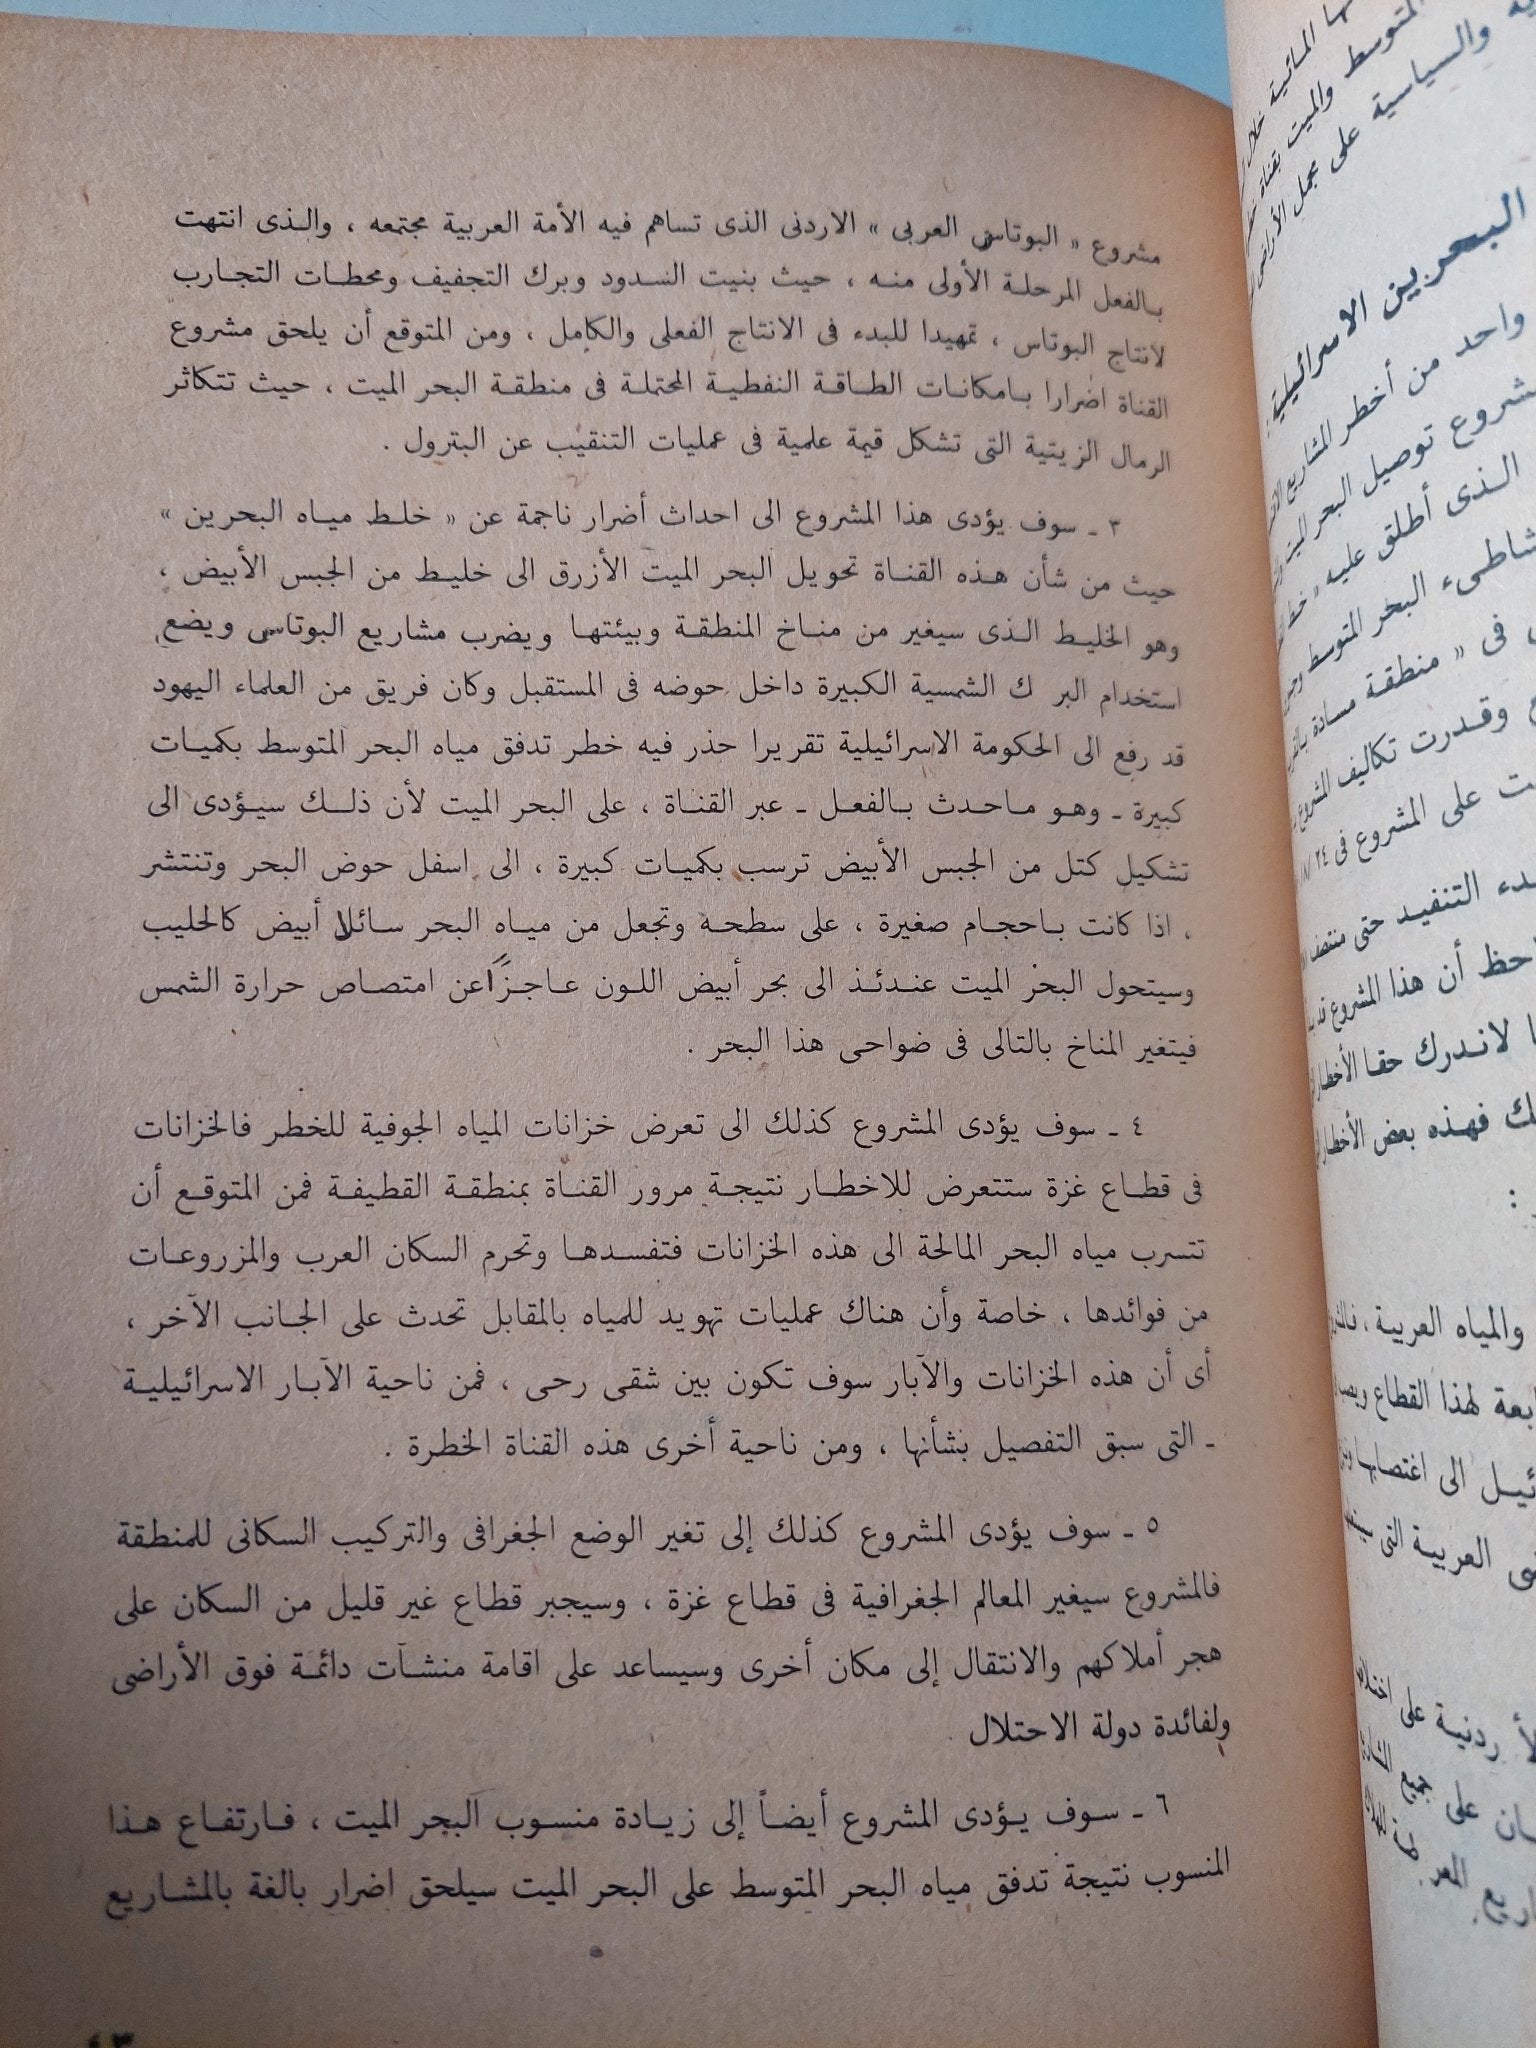 مشروع « البوتاس العربى » الاردنى الذى تساهم فيه الأمة العربية مجتمعه ، والـذى انتهت
بـالفعل المرحلـة الأولى منـه ، حيث بنيت السـدود وبرك التجفيف ومحطـات التجـارب
لانتاج البوتاس ، تمهيدا للبدء فى الانتاج الفعلى والكامل ، ومن المتوقع أن يلحق مشروع
القناة اضرارا بـامكانـات الطـاقـة النفطيـة المحتملـة فى منطقـة البحر الميت ، حيث تتكاثر
الرمال الزيتية التى تشكل قيمة علمية فى عمليات التنقيب عن البترول .
٣ ـ سوف يؤدى هذا المشروع الى احداث أضرار ناجمة عن « خلـط ميـاه البحرين »
حيث من شأن هـذه القنـاة تحويـل البحر الميت الأزرق الى خليـط من الجبس الأبيض ،
وهو الخليـط الـذى سيغير من منـاخ المنطقـة وبيئتهـا ويضرب مشاريع البوتاس ويضع
استخدام البر ك الشمسية الكبيرة داخل حوضه فى المستقبل وكان فريق من العلماء اليهود
قد رفع الى الحكومة الاسرائيلية تقريرا حذر فيه خطر تدفق مياه البحر المتوسط بكميـات
كبيرة ـ وهـو مـاحدث بـالفعـل ـ عبر القنـاة ، على البحر الميت لأن ذلـك سيـؤدى الى
تشكيل كتل من الجبس الأبيض ترسب بكميـات كبيرة ، الى اسفل حوض البحر وتنتشر
، اذا كانت بـاحجـام صغيرة ، على سطحـه وتجعل من ميـاه البحر سـائلا أبيض كالحليب
وسيتحول البحر الميت عنـدئـذ الى بحر أبيض اللـون عـاجـزًا عن امتصـاص حرارة الشمس
فيتغير المناخ بالتالى فى ضواحى هذا البحر .
٤ ـ سوف يؤدى المشروع كذلك الى تعرض خزانات المياه الجوفية للخطر فالخزانات
فى قطـاع غزة ستتعرض للاخطـار نتيجـة مرور القنـاة بمنطقـة القطيفـة فمن المتوقـع أن
تتسرب مياه البحر المالحة الى هذه الخزانات فتفسـدهـا وتحرم السكان العرب والمزروعـات
من فوائدها ، خاصة وأن هناك عمليات تهويد للمياه بالمقابل تحدث على الجـانب الآخر ،
أى أن هذه الخزانات والآبار سوف تكون بين شقى رحى ، فمن ناحية الآبـار الاسرائيليـة
ـ التى سبق التفصيل بشأنها ، ومن ناحية أخرى هذه القناة الخطرة .
٥ ـ سوف يؤدى المشروع كذلك إلى تغير الوضع الجغرافى والتركيب السكانى للمنطقة
فالمشروع سيغير المعالم الجغرافية فى قطاع غزة ، وسيجبر قطاع غير قليل من السكان على
هجر أملاكهم والانتقال إلى مكان أخرى وسيساعد على اقامة منشـآت دائمـة فوق الأراضى
ولفائدة دولة الاحتلال
٦ ـ سـوف يـؤدى المشروع أيضـاً إلى زيـادة منسـوب البحر الميت ، فـارتفـاع هـذا
المنسوب نتيجة تدفق مياه البحر المتوسط على البحر الميت سيلحق اضرار بالغة بالمشـاريع
المتوسط والميت بقناة
والسياسية على مجمل
البحرين الاسرائيلية
واحد من أخطر المشاريع
مشروع توصيل البحر الميت
الـذى أطلق عليه « خط
شاطىء البحر المتوسط
فى « منطقـة مسـادة
وقـدرت تكاليف المشروع
على المشروع فى ٢٤
التنفيـذ حتى منتصف
أن هذا المشروع قد
لانـدرك حقـا الأخطار
فهـذه بعض الأخطار
والمياه العربيـة
لهذا القطاع
الى اغتصابها
العربيـة التى
على
على جميع